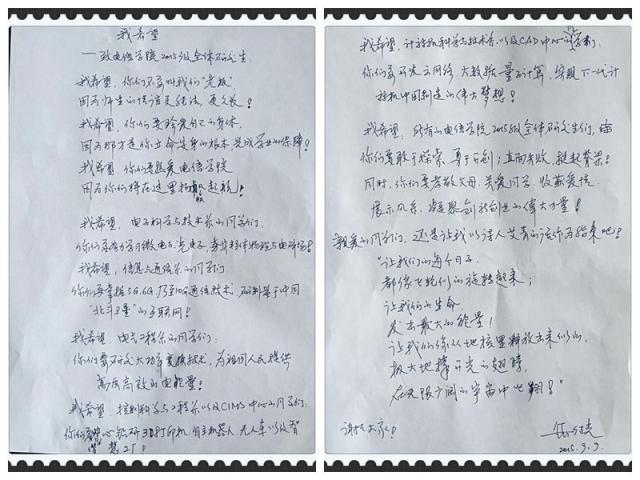 我希望
——致电信学院2015级全体研究生
我希望，你们不要叫我们"老板"
因为师生的情谊更纯洁，更久长！
我希望，你们要珍爱自己的身体，
因为那才是你立命安身的根本，完成学业的保障！
我希望，你们要热爱电信学院
因为你们将在这里扬帆起航！
我希望，电子科学与技术系的同学们，
我希望，信息与通信系的同学们，
你们要掌握5G.6G乃至10G通信技术，研制基于中国
"北斗卫星"的互联网！
我希望，电气工程系的同学们：
你们要研究大功率变换技术，为祖国人民提供
高质高效的电能量！
我希望，控制科学与工程系以及CIMS中心的同学们，
你们要潜心钻研3D打印机，自主机器人，无人车以及智
慧工厂！
我希望，计算机科学与技术系以及CAD中心的同学们，
你们要研究云网络，大数据，量子计算，实现下一代计
算机中国制造的伟大梦想！
我希望，所有的电信学院2015级全体研究生们，
你们要敢于探索，勇于创新；直面失败，挺起脊梁！
同时，你们要孝敬父母，关爱同学，收获爱情，
展示风采，凝聚创新创造的伟大力量！
亲爱的同学们，还是让我以诗人艾青的诗作为结束吧！
"让我们的每个日子
都像飞轮似的旋转起来；
让我们的生命
发出最大的能量！
让我们像从地核里释放出来似的，
极大地撑开光的翅膀
在无限广阔的宇宙中飞翔！"
谢谢大家！
2015.9.9.